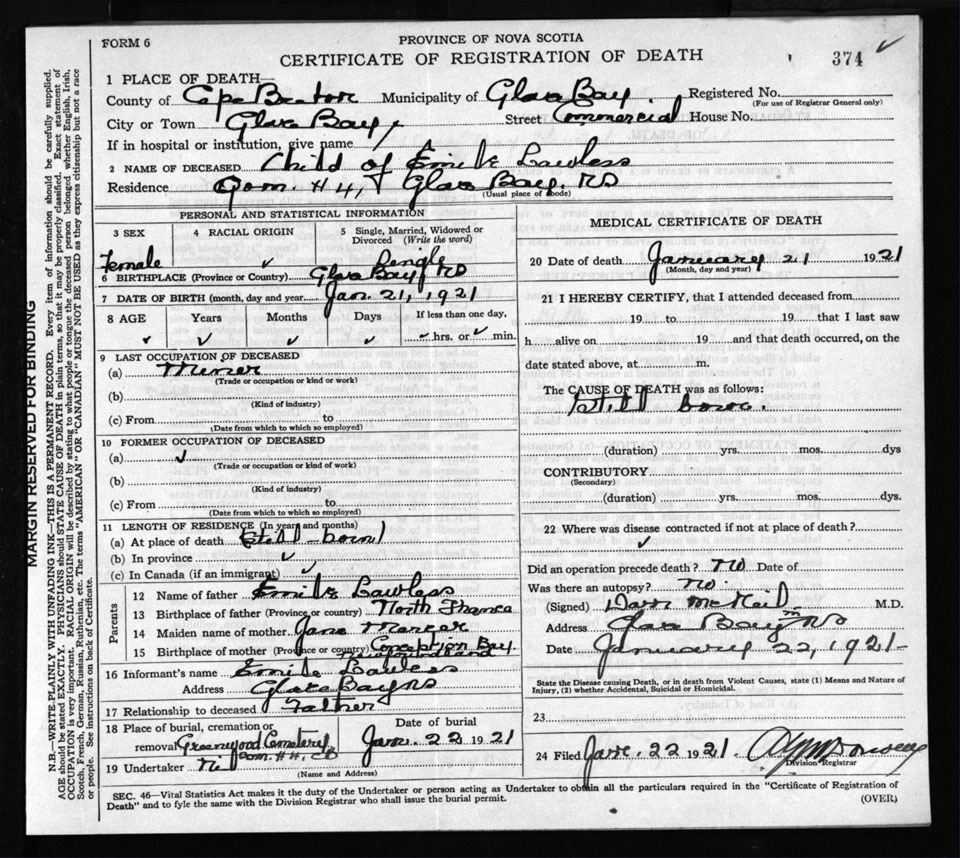 FORM 6
PROVINCE OF NOVA SCOTIA
CERTIFICATE OF REGISTRATION OF DEATH
374
1 PLACE OF DEATH—
County of Cape Breton Municipality of Glace Bay Registered No.
(For use of Registrar General only)
City or Town Glace Bay Street Commercial House No.
If in hospital or institution, give name
2 NAME OF DECEASED Child of Emile Lawless
Residence Dom. #4, Glace Bay, NS
(Usual place of abode)
PERSONAL AND STATISTICAL INFORMATION
3 SEX 4 RACIAL ORIGIN 5 Single, Married, Widowed or Divorced (Write the word)
Female Single
6 BIRTHPLACE (Province or Country) Glace Bay, NS
7 DATE OF BIRTH (month, day and year) Jan. 21, 1921
8 AGE Years Months Days If less than one day,
hrs. or min.
9 LAST OCCUPATION OF DECEASED
(a) Miner
(Trade or occupation or kind or work)
(b)
(Kind of industry)
(c) From to
(Date from which to which so employed)
10 FORMER OCCUPATION OF DECEASED
(a)
(Trade or occupation or kind of work)
(b)
(Kind of industry)
(c) From to
(Date from which to which so employed)
11 LENGTH OF RESIDENCE (In years and months)
(a) At place of death Still-born
(b) In province
(c) In Canada (if an immigrant)
Parents
12 Name of father Emile Lawless
13 Birthplace of father (Province or country) North France
14 Maiden name of mother Jane Mercer
15 Birthplace of mother (Province or country) Conception Bay
Newfoundland
16 Informant's name Emile Lawless
Address Glace Bay NS
17 Relationship to deceased Father
18 Place of burial, cremation or removal Greenwood Cemetery
Dom. #4, CB
Date of burial
Jan. 22 1921
19 Undertaker
(Name and Address)
MEDICAL CERTIFICATE OF DEATH
20 Date of death January 21 1921
(Month, day and year)
21 I HEREBY CERTIFY, that I attended deceased from
19 to 19 that I last saw
h alive on 19 and that death occurred, on the
date stated above, at m.
The CAUSE OF DEATH was as follows:
Still born.
(duration) yrs. mos. dys
CONTRIBUTORY
(Secondary)
(duration) yrs. mos. dys.
22 Where was disease contracted if not at place of death?
Did an operation precede death? No Date of
Was there an autopsy? No
(Signed) McNeil M.D.
Address Glace Bay NS
Date January 22, 1921
State the Disease causing Death, or in death from Violent Causes, state (1) Means and Nature of
Injury, (2) whether Accidental, Suicidal or Homicidal.
23
24 Filed Jan. 22 1921
Division Registrar
SEC. 46—Vital Statistics Act makes it the duty of the Undertaker or person acting as Undertaker to obtain all the particulars required in the "Certificate of Registration of
Death" and to fyle the same with the Division Registrar who shall issue the burial permit.
(OVER)
MARGIN RESERVED FOR BINDING
N.B.—WRITE PLAINLY WITH UNFADING INK—THIS IS A PERMANENT RECORD. Every item of information should be carefully supplied.
AGE should be stated EXACTLY. PHYSICIANS should STATE CAUSE OF DEATH in plain terms, so that it may be properly classified. Exact statement of
OCCUPATION is very important. RACIAL ORIGIN will be described by stating to what people or tongue the deceased person belonged whether English, Irish,
Scotch, French, German, Russian, Ruthenian, etc. The terms "AMERICAN" OR "CANADIAN" MUST NOT BE USED as they express citizenship but not a race
or people. See instructions on back of Certificate.